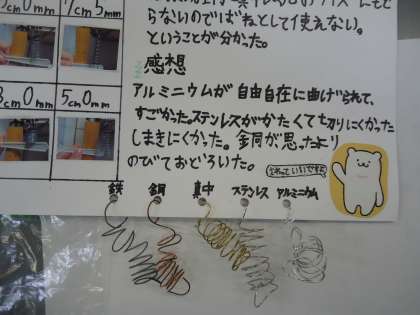 らないのでばねとして使えない。
ということが分かった。
感想
アルミニウムが自由自在に曲げられて、
すごかった。ステンレスがかたくて切りにくかったし
しまきにくかった。金銅が思ったより
のびておどろいた。
さわっていいですよ
3cm0mm
5cm0mm
鉄
銅
真中
ステンレス
アルミニウム